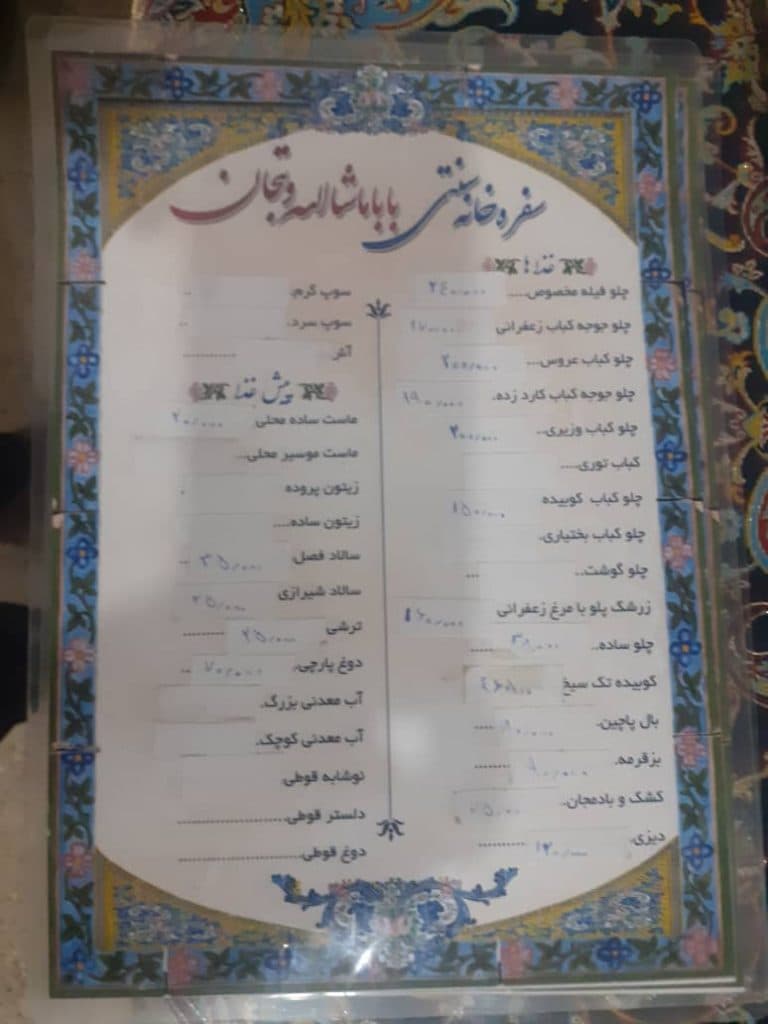 سفره خانه سنتی باباماشااله ونجان
غذاها
چلو فیله مخصوص.... ۲۴۰,۰۰۰
چلو جوجه کباب زعفرانی
چلو کباب عروس... ۲۰۰,۰۰۰
چلو جوجه کباب کارد زده. ۱۹۰,۰۰۰
چلو کباب وزیری.. ۲۰۰,۰۰۰
کباب توری....
چلو کباب کوبیده ۱۵۰,۰۰۰
چلو کباب بختیاری.
چلو گوشت.. ...
زرشک پلو با مرغ زعفرانی ۱۶۰,۰۰۰
چلو ساده.. ۳۸,۰۰۰ .....
کوبیده تک سیخ
بال پاچین.
بزقرمه. ........
کشک و بادمجان..
دیزی. ۱۲۰,۰۰۰ ..........
سوپ گرم. ..
سوپ سرد. ..
آش ...........
پیش غذا
ماست ساده محلی ۲۰,۰۰۰
ماست موسیر محلی...
زیتون پروده .
زیتون ساده....
سالاد فصل ۳۵,۰۰۰ ..
سالاد شیرازی ۲۵,۰۰۰
ترشی ۲۵,۰۰۰ .........
دوغ پارچی. ۷۰,۰۰۰ ..
آب معدنی بزرگ.
آب معدنی کوچک.
نوشابه قوطی
دلستر قوطی..............................
دوغ قوطی..............................